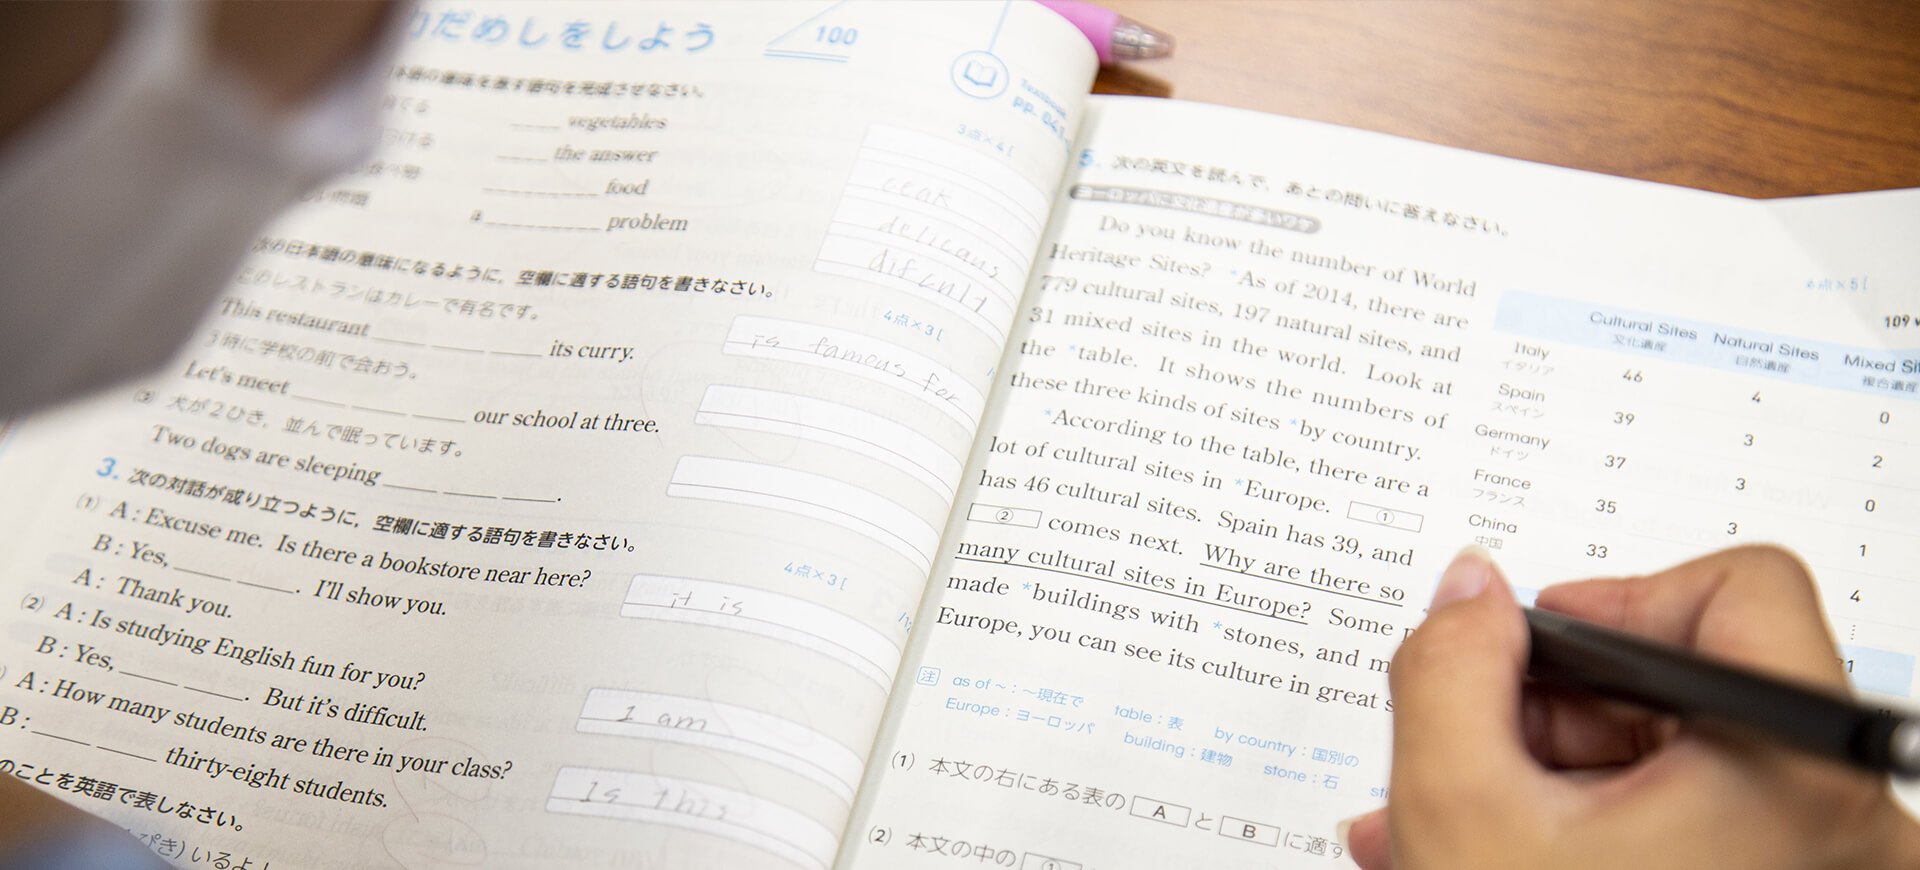 だめしをしよう
100
Textbook
の意味を表す語句を完成させなさい。
____ vegetables
____ the answer
food
a ____ problem
3点×4
delicaus
dificult
次の日本語の意味になるように，空欄に適する語句を書きなさい。
このレストランはカレーで有名です。
This restaurant ____ ____ ____ its curry.
4点×3
is famous for
3時に学校の前で会おう。
Let's meet ____ ____ ____ our school at three.
(3) 犬が2ひき，並んで眠っています。
Two dogs are sleeping ____ ____ ____.
3. 次の対話が成り立つように，空欄に適する語句を書きなさい。
(1) A : Excuse me. Is there a bookstore near here?
B : Yes, ____ ____. I'll show you.
A : Thank you.
4点×3
it is
(2) A : Is studying English fun for you?
B : Yes, ____ ____. But it's difficult.
I am
A : How many students are there in your class?
B : ____ ____ thirty-eight students.
Is this
のことを英語で表しなさい。
ぴき）いるよ
5. 次の英文を読んで，あとの問いに答えなさい。
Do you know the number of World
Heritage Sites? *As of 2014, there are
779 cultural sites, 197 natural sites, and
31 mixed sites in the world. Look at
the *table. It shows the numbers of
these three kinds of sites *by country.
*According to the table, there are a
lot of cultural sites in *Europe. ①
has 46 cultural sites. Spain has 39, and
② comes next. Why are there so
many cultural sites in Europe? Some
made *buildings with *stones, and
Europe, you can see its culture in great
4点×5
109
Cultural Sites Natural Sites Mixed
文化遺産 自然遺産 複合遺産
Italy 46 4 0
イタリア
Spain 39 3 2
スペイン
Germany 37 3 0
ドイツ
France 35 3 1
フランス
China 33 4
中国
注 as of ～：～現在で table：表 by country：国別の
Europe：ヨーロッパ building：建物 stone：石
(1) 本文の右にある表の A と B に適す
(2) 本文の中の ①